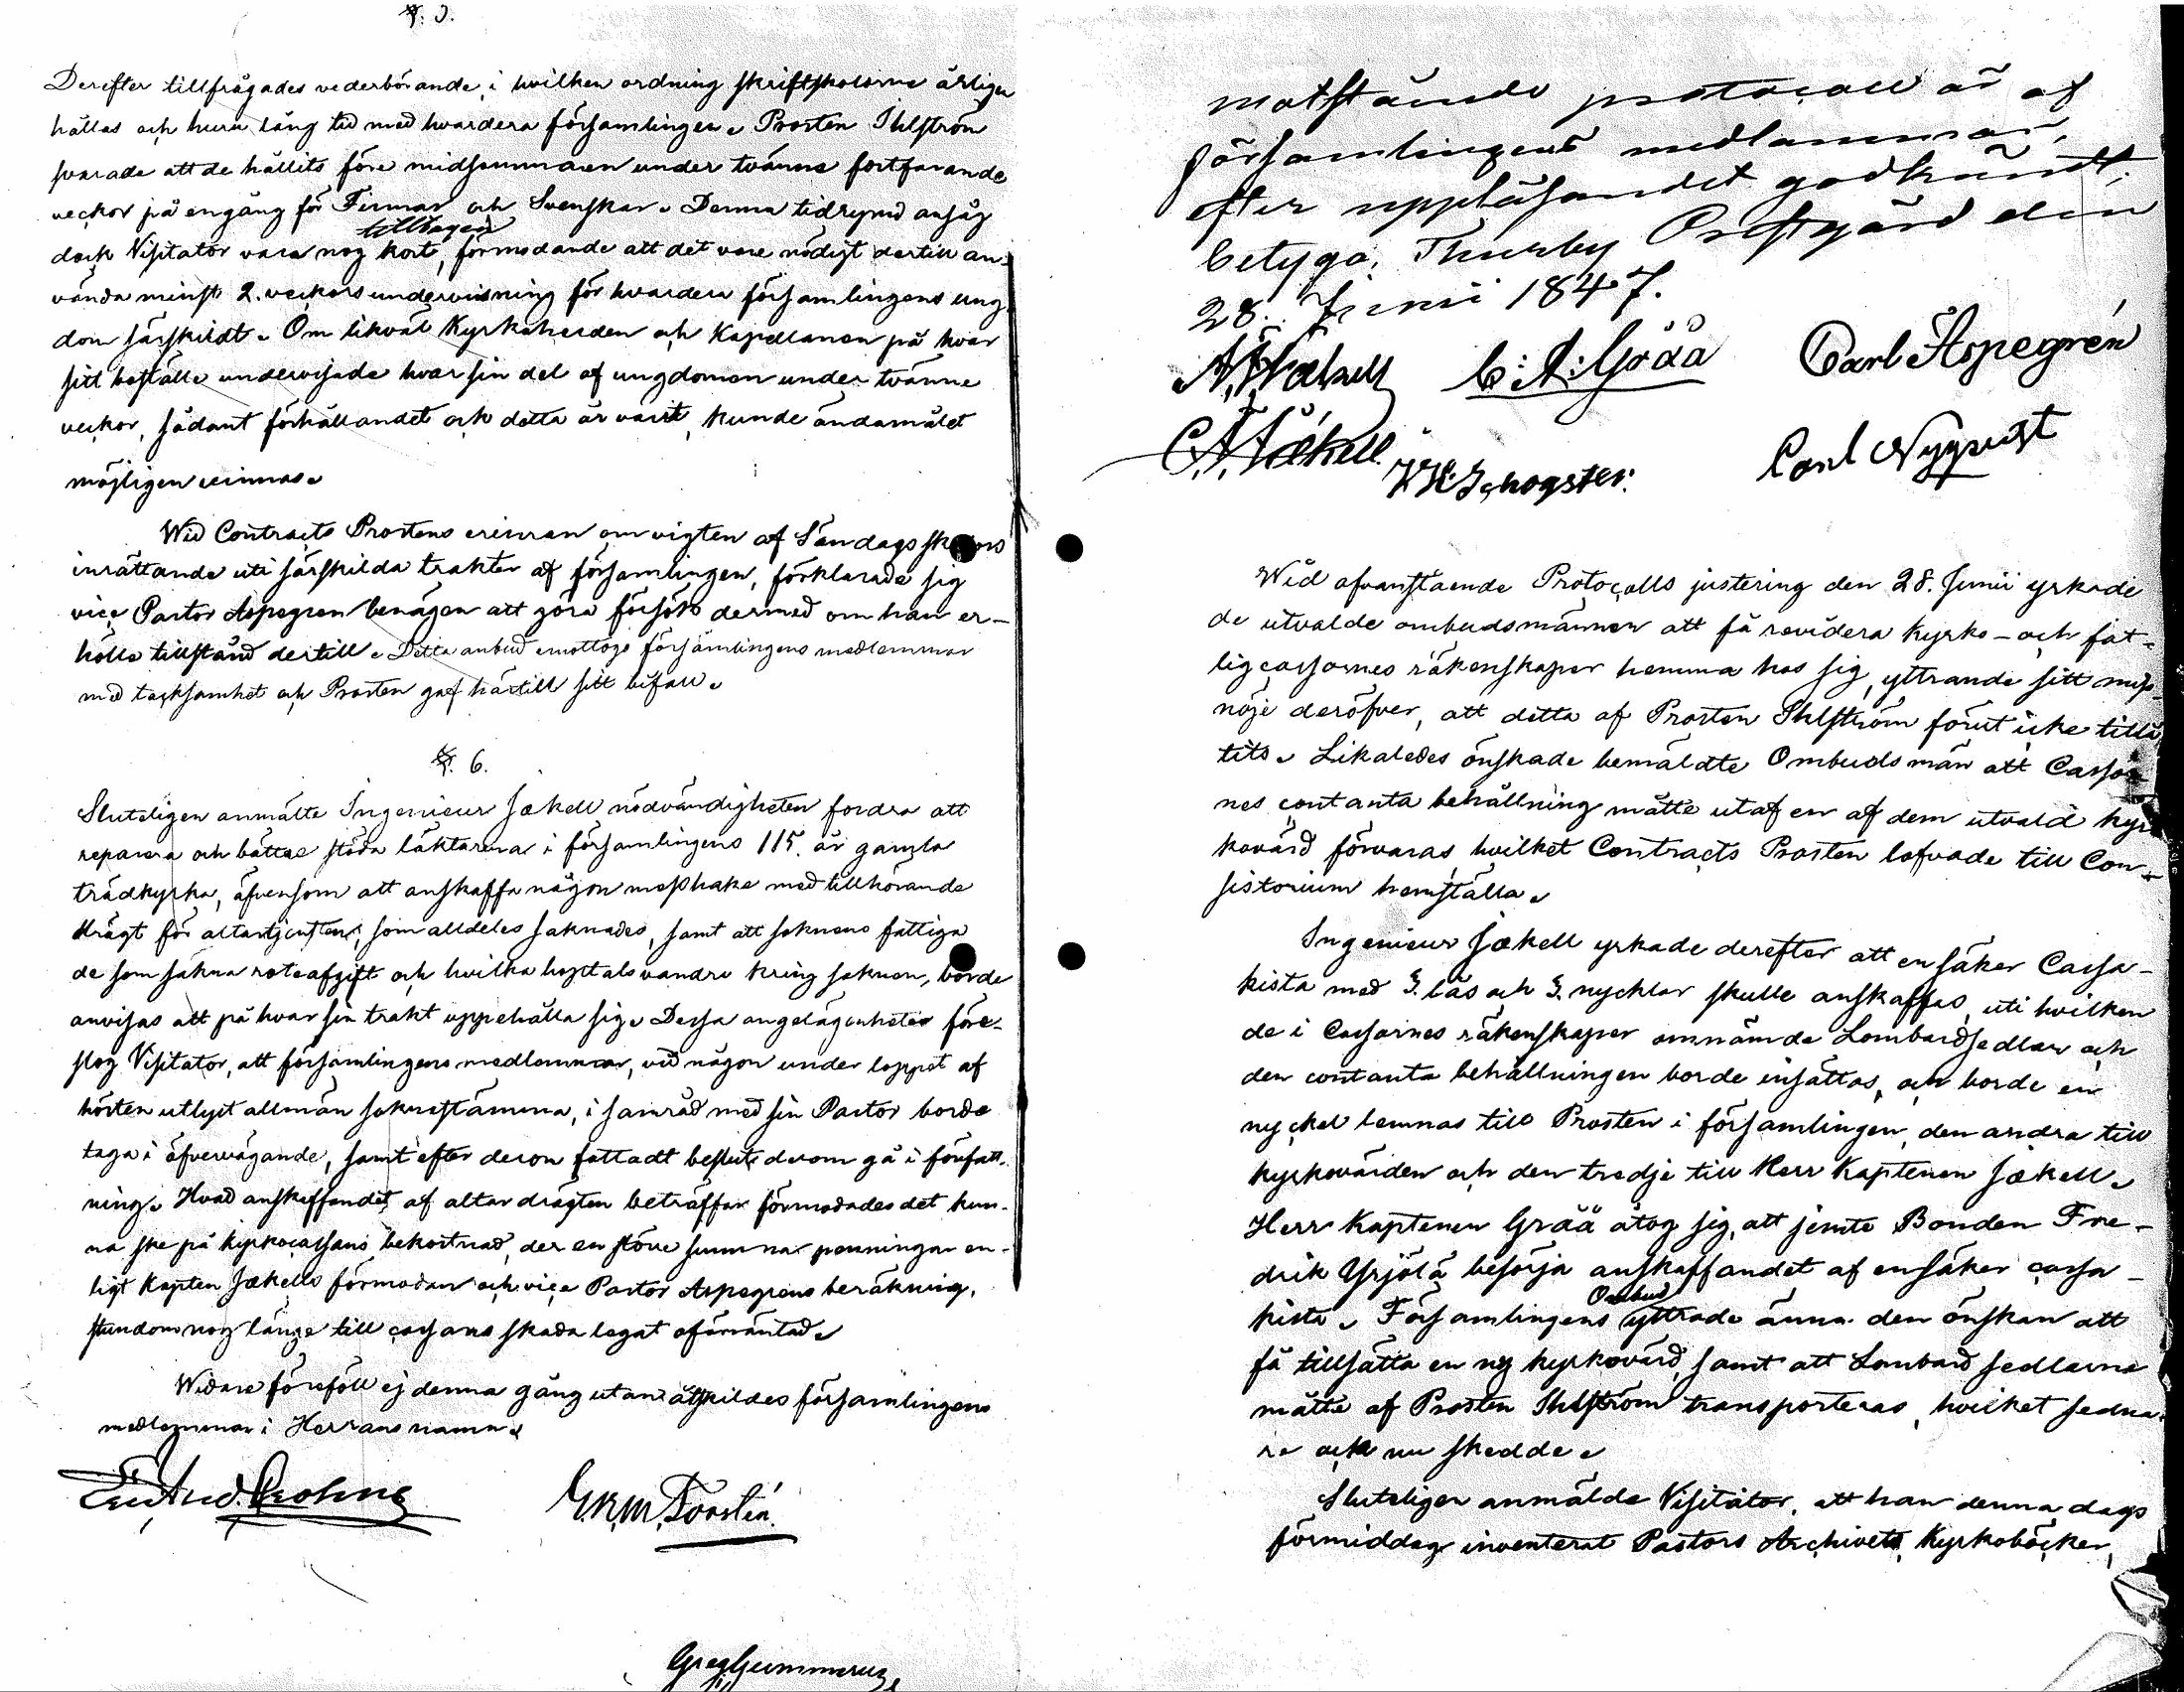 §. 5.
Derefter tillfrågades vederbörande, i hvilken ordning skriftskolorne årligen
hållas och huru lång tid med hvardera församlingen. Prosten Ihlström
svarade att de hållits före midsommaren under tvänne fortfarande
veckor på engång för Finnar och Svenskar. Denna tidrymd ansåg
tilltagen
dock Visitator vara nog kort, förmodande att det vore nödigt dertill an-
vända minst 2. veckors undervisning för hvardera församlingens ung-
dom särskildt. Om likväl Kyrkoherden och Kapellanen på hvar
sitt boställe undervisade hvar sin del af ungdomen under tvänne
veckor, sådant förhållandet ock detta år varit, kunde ändamålet
möjligen vinnas.
Wid Contracts Prostens erinran om vigten af Söndagsskolors
inrättande uti särskilda trakter af församlingen, förklarade sig
vice Pastor Aspegren benägen att göra försök dermed om han er-
hölle tillstånd dertill. Detta anbud emottogo församlingens medlemmar
med tacksamhet och Prosten gaf härtill sitt bifall.
§. 6.
Sluteligen anmälte Ingenieur Jækell nödvändigheten fordra att
reparera och bättre stöda läktarena i församlingens 115. år gamla
trädkyrka, äfvensom att anskaffa någon messhake med tillhörande
drägt för altartjensten, som alldeles saknades, samt att soknens fattiga
de som sakna roteafgift och hvilka hoptals vandra kring soknen, borde
anvisas att på hvar sin trakt uppehålla sig. Dessa angelägenheter före-
slog Visitator, att församlingens medlemmar, vid någon under loppet af
hösten utlyst allmän soknestämma, i samråd med sin Pastor borde
taga i öfvervägande, samt efter derom fattadt beslut derom gå i författ-
ning. Hvad anskaffandet af altar drägten beträffar förmodades det kun-
na ske på kyrkocassans bekostnad, der en större summa penningar en-
ligt Kapten Jækells förmodan och vice Pastor Aspegrens beräkning,
stundom nog länge till cassans skada legat oförräntad.
Widare föreföll ej denna gång utan åtskildes församlingens
medlemmar i Herrans namn.
G.R.M. Forstén.
motstående protocoll är af
församlingens medlemmar,
efter uppläsandet godkändt,
betyga. Thurby Prestgård den
28. Junii 1847.
A. Jækell C: A: Gråå Carl Aspegrén
C. A. Jækell. Carl Nyqvist
Wid ofvanstående Protocolls justering den 28. Junii yrkade
de utvalde ombudsmännen att få revidera Kyrko- och fat-
ligcassornes räkenskaper hemma hos sig, yttrande sitt miss-
nöje deröfver, att detta af Prosten Ihlström förut icke tillå
tits. Likaledes önskade bemäldte Ombudsmän att Cassor
nes contanta behållning måtte utaf en af dem utvald kyr
kovärd förvaras hvilket Contracts Prosten lofvade till Con-
sistorium hemställa.
Ingenieur Jækell yrkade derefter att en säker Cassa-
kista med 3. lås och 3. nycklar skulle anskaffas, uti hvilken
de i Cassornes räkenskaper omnämde Lombardsedlar och
den contanta behållningen borde insättas, och borde en
nyckel lemnas till Prosten i församlingen, den andra till
kyrkovärden och den tredje till Herr Kaptenen Jækell.
Herr Kaptenen Gråå åtog sig, att jemte Bonden Fre-
drik Yrjölä besörja anskaffandet af en säker cassa-
Ombud
kista. Församlingens yttrade ännu den önskan att
få tillsätta en ny kyrkovärd, samt att Lombard sedlarne
måtte af Prosten Ihlström transporteras, hvilket sedna-
re ock nu skedde.
Sluteligen anmälde Visitator, att han denna dags
förmiddag inventerat Pastors Archivets Kyrkoböcker,